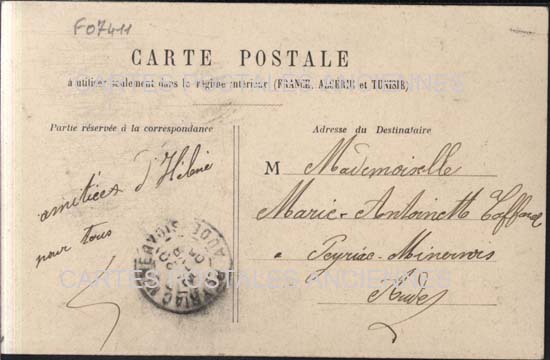 F07411
CARTE POSTALE
à utiliser seulement dans le régime intérieur (FRANCE, ALGÉRIE et TUNISIE)
CARTES POSTALES ANCIENNES
Partie réservée à la correspondance
Adresse du Destinataire
amitiées d'Hélène
pour tous
M Mademoiselle
Marie-Antoinette
à Peyriac-Minervois
Aude
AUDE
CARTES POSTALES ANCIENNES